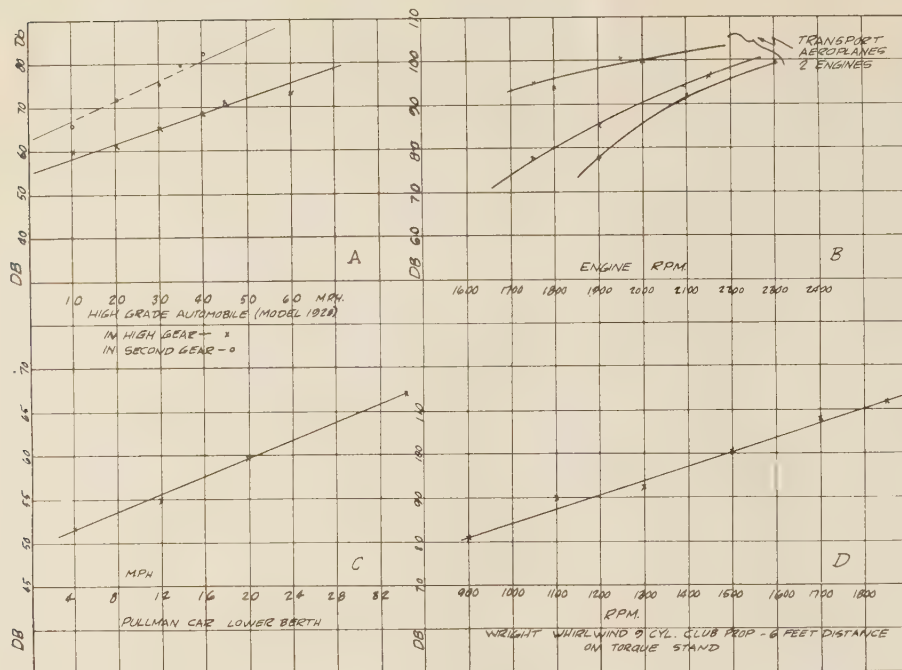 Db
80
70
60
50
40
DB
A
10 20 30 40 50 60 MPH.
HIGH GRADE AUTOMOBILE (MODEL 1928)
IN HIGH GEAR — x
IN SECOND GEAR - o
110
100
90
80
70
DB 60
TRANSPORT
AEROPLANES
2 ENGINES
B
ENGINE RPM.
1600 1700 1800 1900 2000 2100 2200 2300 2400
70
65
60
55
50
45
DB
C
MPH
4 8 12 16 20 24 28 32
PULLMAN CAR LOWER BERTH
110
100
90
80
70
DB
D
900 1000 1100 1200 1300 1400 1500 1600 1700 1800
RPM.
WRIGHT WHIRLWIND 9 CYL. CLUB PROP - 6 FEET DISTANCE
ON TORQUE STAND